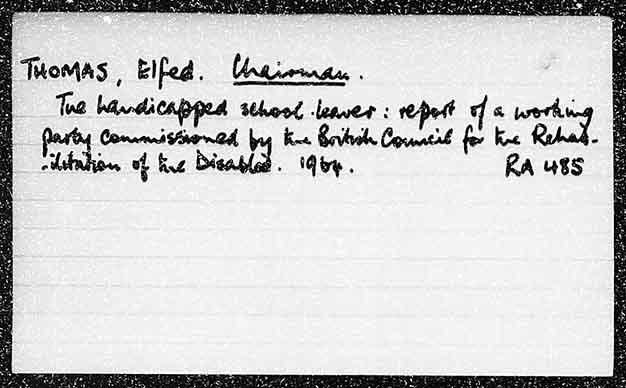 THOMAS, Elfed. Chairman.
The handicapped school-leaver: report of a working
party commissioned by the British Council for the Rehab-
-ilitation of the Disabled. 1964. RA 485